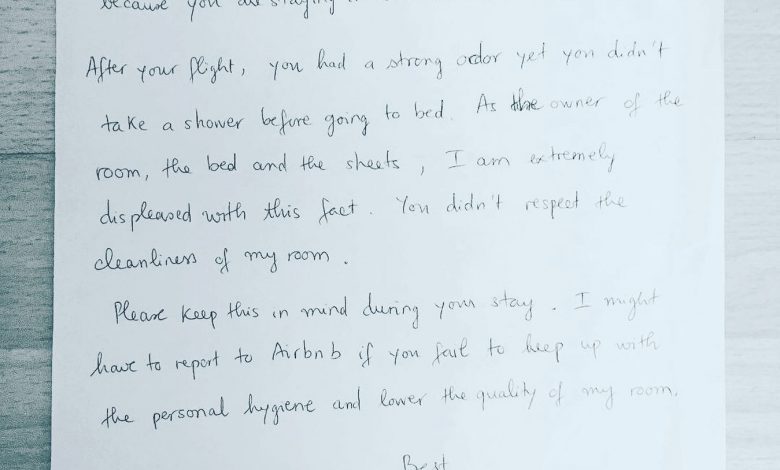 because you are staying
After your flight, you had a strong odor yet you didn't
take a shower before going to bed. As the owner of the
room, the bed and the sheets, I am extremely
displeased with this fact. You didn't respect the
cleanliness of my room.
Please keep this in mind during your stay. I might
have to report to Airbnb if you fail to keep up with
the personal hygiene and lower the quality of my room.
Best